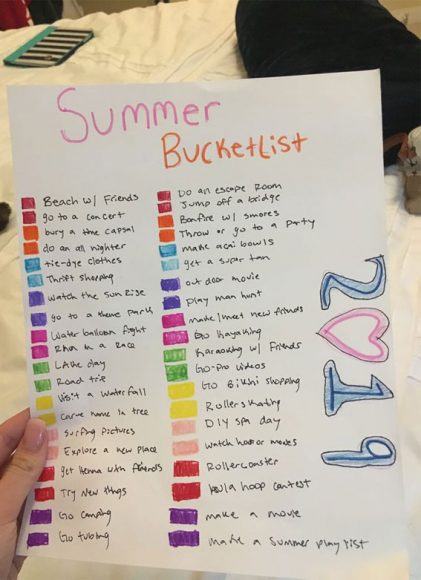 Summer
Bucketlist
Beach w/ Friends
go to a concert
bury a time capsal
do an all nighter
tie-dye clothes
Thrift shopping
Watch the Sun Rise
go to a theme park
Water balloon fight
Run in a Race
LAke day
Road trip
Visit a Waterfall
Carve name in tree
Surfing pictures
Explore a new place
get Henna with friends
Try new things
Go camping
Go tubing
Do an escape Room
Jump off a bridge
Bonfire w/ smores
Throw or go to a Party
make acai bowls
get a super tan
out door movie
Play man hunt
make/meet new friends
Go Kayaking
Karaoking w/ Friends
Go-Pro videos
GO Bikini shopping
Rollerskating
DIY spa day
Watch horror movies
Rollercoaster
hula hoop contest
make a movie
Make a Summer play list
2♡19